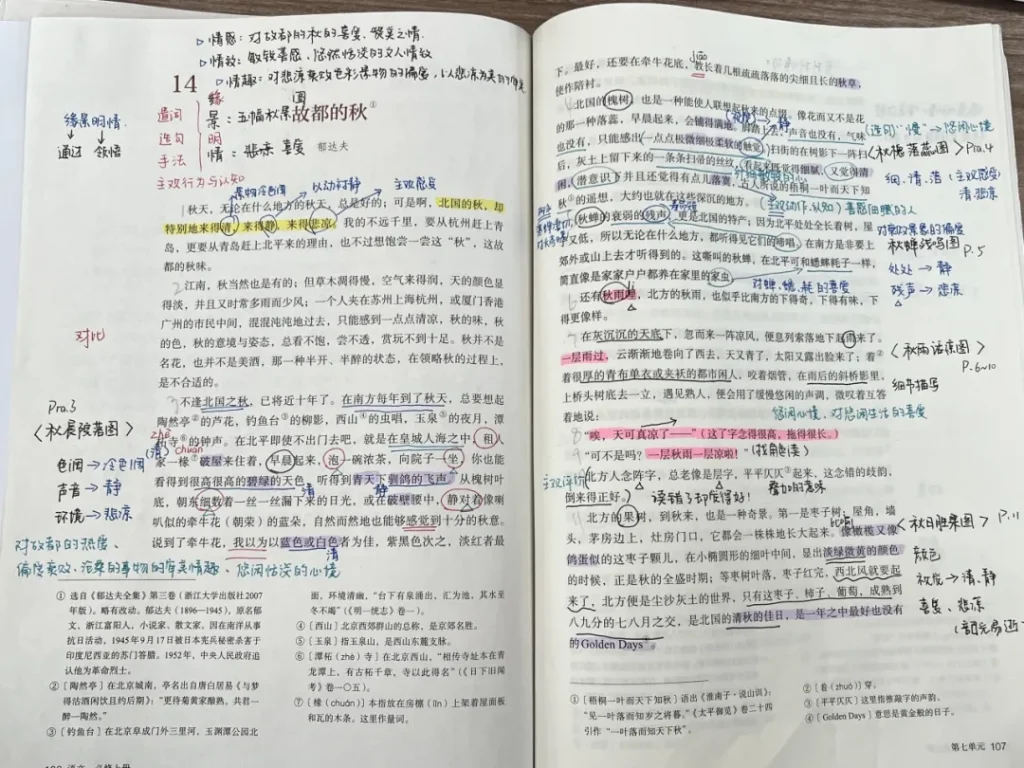 ▷情感：对故都的秋的喜爱、赞美之情.
▷情致：敏锐善感、悠然恬淡的文人情致
▷情趣：对悲凉衰败色彩景物的偏爱，以悲凉为美的
14
故都的秋①
郁达夫
缘景明情.
通过 领悟
遣词
造句
手法
缘
景：五幅秋景图
明
情：悲凉 喜爱
主观行为与认知
景物冷色调
以动衬静
主观感受
秋天，无论在什么地方的秋天，总是好的；可是啊，北国的秋，却
特别地来得清，来得静，来得悲凉。我的不远千里，要从杭州赶上青
岛，更要从青岛赶上北平来的理由，也不过想饱尝一尝这“秋”，这故
都的秋味。
2江南，秋当然也是有的；但草木凋得慢，空气来得润，天的颜色显
得淡，并且又时常多雨而少风；一个人夹在苏州上海杭州，或厦门香港
广州的市民中间，混混沌沌地过去，只能感到一点点清凉，秋的味，秋
的色，秋的意境与姿态，总看不饱，尝不透，赏玩不到十足。秋并不是
名花，也并不是美酒，那一种半开、半醉的状态，在领略秋的过程上，
是不合适的。
对比
3不逢北国之秋，已将近十年了。在南方每年到了秋天，总要想起
陶然亭②的芦花，钓鱼台③的柳影，西山④的虫唱，玉泉⑤的夜月，潭
柘寺⑥的钟声。在北平即使不出门去吧，就是在皇城人海之中，租人
家一椽⑦破屋来住着，早晨起来，泡一碗浓茶，向院子一坐，你也能
看得到很高很高的碧绿的天色，听得到青天下驯鸽的飞声。从槐树叶
底，朝东细数着一丝一丝漏下来的日光，或在破壁腰中，静对着像喇
叭似的牵牛花（朝荣）的蓝朵，自然而然地也能够感觉到十分的秋意。
说到了牵牛花，我以为以蓝色或白色者为佳，紫黑色次之，淡红者最
zhè
chuán
清
静
清
Pra.3
〈秋晨院落图〉
色调→冷色调(清)
声音→静
环境→悲凉
对故都的热爱、
偏爱衰败、沧桑的事物的审美情趣、悠闲恬淡的心境
① 选自《郁达夫全集》第三卷（浙江大学出版社2007
年版）。略有改动。郁达夫（1896—1945），原名郁
文，浙江富阳人，小说家、散文家。因在南洋从事
抗日活动，1945年9月17日被日本宪兵秘密杀害于
印度尼西亚的苏门答腊。1952年，中央人民政府追
认他为革命烈士。
②〔陶然亭〕在北京城南，亭名出自唐白居易《与梦
得沽酒闲饮且约后期》：“更待菊黄家酿熟，共君一
醉一陶然。”
③〔钓鱼台〕在北京阜成门外三里河，玉渊潭公园北
面，环境清幽，“台下有泉涌出，汇为池，其水至
冬不竭”（《明一统志》卷一）。
④〔西山〕北京西郊群山的总称，是京郊名胜。
⑤〔玉泉〕指玉泉山，是西山东麓支脉。
⑥〔潭柘（zhè）寺〕在北京西山，“相传寺址本在青
龙潭上，有古柘千章，寺以此得名”（《日下旧闻
考》卷一〇五）。
⑦〔椽（chuán）〕本指放在房檩（lǐn）上架着屋面板
和瓦的木条。这里作量词。
语文 必修上册
下。最好，还要在牵牛花底，教长着几根疏疏落落的尖细且长的秋草，
使作陪衬。
北国的槐树，也是一种能使人联想起秋来的点缀。像花而又不是花
的那一种落蕊，早晨起来，会铺得满地。脚踏上去，声音也没有，气味
也没有，只能感出一点点极微细极柔软的触觉。扫街的在树影下一阵扫
后，灰土上留下来的一条条扫帚的丝纹，看起来既觉得细腻，又觉得清
闲，潜意识下并且还觉得有点儿落寞，古人所说的梧桐一叶而天下知
秋①的遥想，大约也就在这些深沉的地方。
秋蝉的衰弱的残声，更是北国的特产；因为北平处处全长着树，屋
子又低，所以无论在什么地方，都听得见它们的啼唱。在南方是非要上
郊外或山上去才听得到的。这嘶叫的秋蝉，在北平可和蟋蟀耗子一样，
简直像是家家户户都养在家里的家虫。
6还有秋雨哩，北方的秋雨，也似乎比南方的下得奇，下得有味，下
得更像样。
7在灰沉沉的天底下，忽而来一阵凉风，便息列索落地下起雨来了。
一层雨过，云渐渐地卷向了西去，天又青了，太阳又露出脸来了；着②
着很厚的青布单衣或夹袄的都市闲人，咬着烟管，在雨后的斜桥影里，
上桥头树底去一立，遇见熟人，便会用了缓慢悠闲的声调，微叹着互答
着地说：
8“唉，天可真凉了——”（这了字念得很高，拖得很长。）
9“可不是吗？一层秋雨一层凉啦！”
北方人念阵字，总老像是层字，平平仄仄③起来，这念错的歧韵，
倒来得正好。
11北方的果树，到秋来，也是一种奇景。第一是枣子树；屋角，墙
头，茅房边上，灶房门口，它都会一株株地长大起来。像橄榄又像
鸽蛋似的这枣子颗儿，在小椭圆形的细叶中间，显出淡绿微黄的颜色
的时候，正是秋的全盛时期；等枣树叶落，枣子红完，西北风就要起
来了，北方便是尘沙灰土的世界，只有这枣子、柿子、葡萄，成熟到
八九分的七八月之交，是北国的清秋的佳日，是一年之中最好也没有
的Golden Days④。
静
造句“慢”→悠闲心境
〈秋槐落蕊图〉Pra.4
细、清、落（主观感受）
清、悲凉
（主观动作、认知）善感细腻的人
〈秋蝉残鸣图〉P.5
处处→静
残声→悲凉
对蝉、蟋、耗的喜爱
〈秋雨话凉图〉
P.6~10
细节描写
悠闲心境，对悠闲生活的喜爱
主观评价
读错了却觉得好！
叠加的意味
比喻
〈秋日胜果图〉P.11
颜色
清、静
喜爱、悲凉
①〔梧桐一叶而天下知秋〕语出《淮南子·说山训》：
“见一叶落而知岁之将暮。”《太平御览》卷二十四
引作“一叶落而知天下秋”。
②〔着（zhuó）〕穿。
③〔平平仄仄〕这里指推敲字的声韵。
④〔Golden Days〕意思是黄金般的日子。
第七单元 107